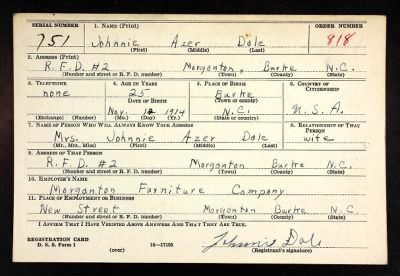 SERIAL NUMBER 1. NAME (Print) ORDER NUMBER
751 Johnnie Azer Dale 818
(First) (Middle) (Last)
2. ADDRESS (Print)
R.F.D. #2 Morganton, Burke N.C.
(Number and street or R. F. D. number) (Town) (County) (State)
3. TELEPHONE 4. AGE IN YEARS 5. PLACE OF BIRTH 6. COUNTRY OF CITIZENSHIP
none 25 Burke
DATE OF BIRTH (Town or county)
Nov. 12 1914 N.C. U.S.A.
(Exchange) (Number) (Mo.) (Day) (Yr.) (State or country)
7. NAME OF PERSON WHO WILL ALWAYS KNOW YOUR ADDRESS 8. RELATIONSHIP OF THAT PERSON
Mrs. Johnnie Azer Dale wife
(Mr., Mrs., Miss) (First) (Middle) (Last)
9. ADDRESS OF THAT PERSON
R.F.D. #2 Morganton Burke N.C.
(Number and street or R. F. D. number) (Town) (County) (State)
10. EMPLOYER'S NAME
Morganton Furniture Company
11. PLACE OF EMPLOYMENT OR BUSINESS
New Street Morganton Burke N.C.
(Number and street or R. F. D. number) (Town) (County) (State)
I AFFIRM THAT I HAVE VERIFIED ABOVE ANSWERS AND THAT THEY ARE TRUE.
REGISTRATION CARD
D. S. S. Form 1 (over) 16—17105 Johnnie Dale
(Registrant's signature)